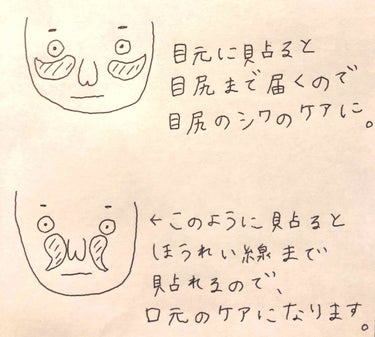 目元に貼ると
目尻まで届くので
目尻のシワのケアに。
←このように貼ると
ほうれい線まで
貼れるので、
口元のケアになります。